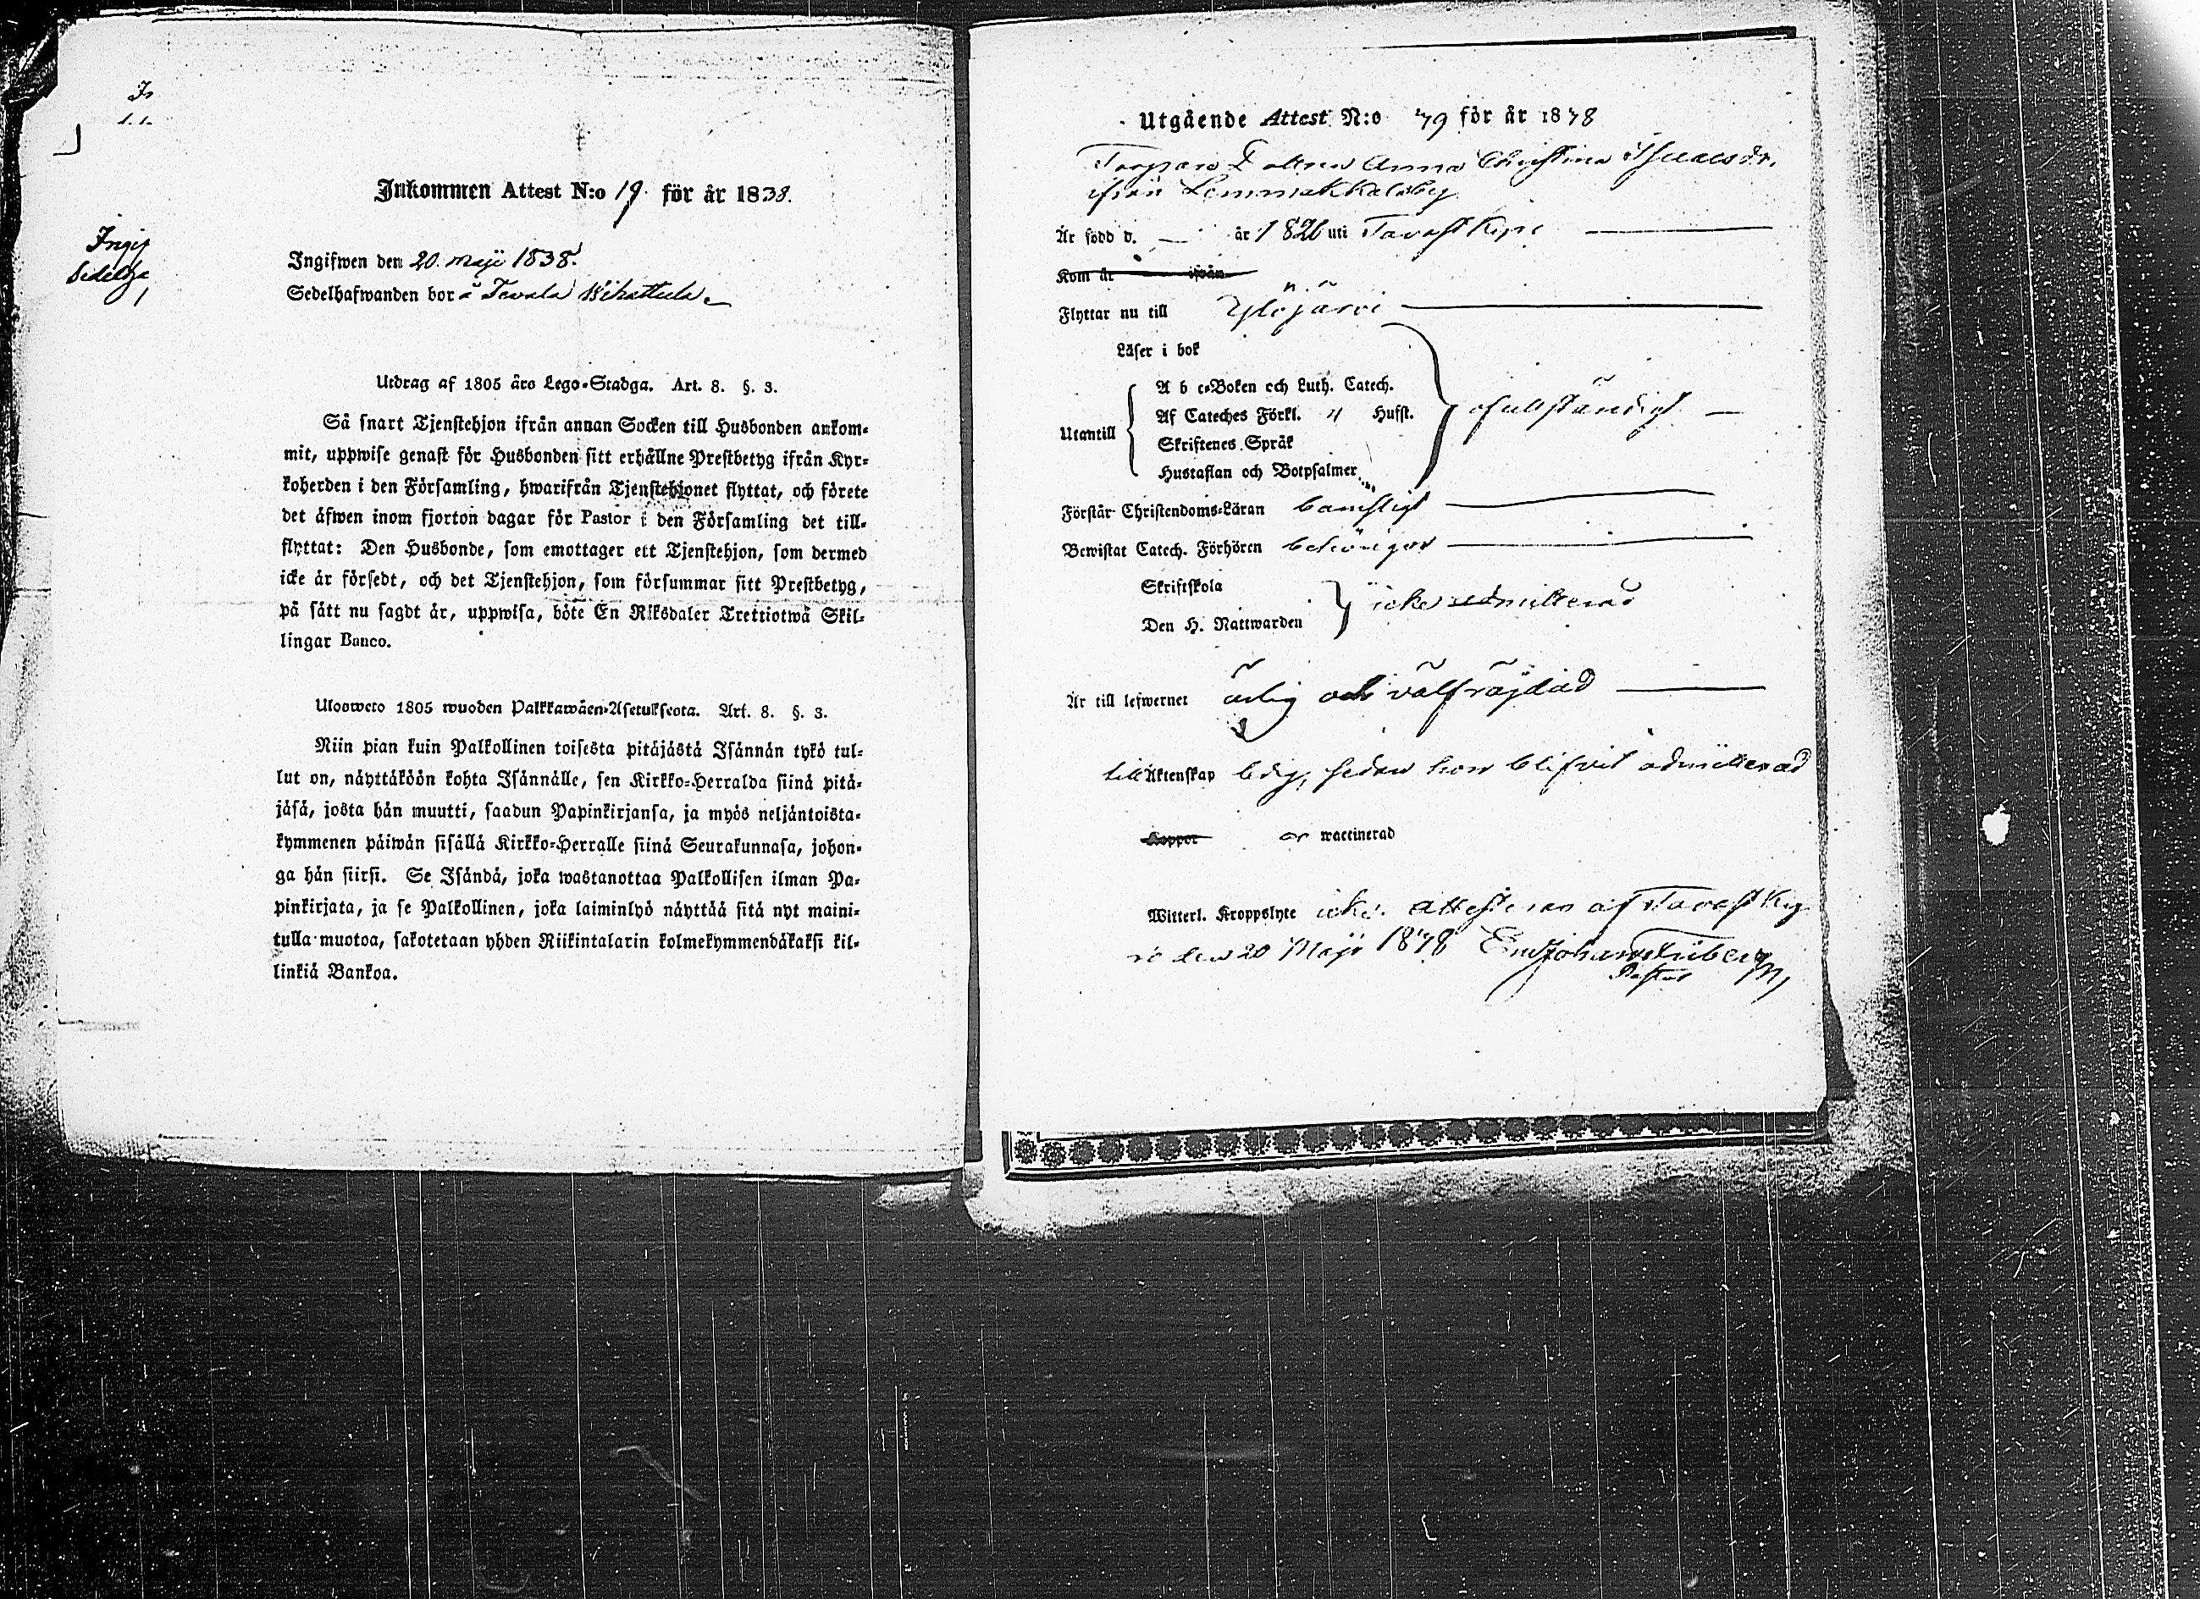 Inkommen Attest N:o 19 för år 1838.
Ingif
Sedelha
Ingifwen den 20 maji 1838.
Sedelhafwanden bor å
Utdrag af 1805 års Lego-Stadga. Art. 8. §. 3.
Så snart Tjenstehjon ifrån annan Socken till Husbonden ankom-
mit, uppwise genast för Husbonden sitt erhållne Prestbetyg ifrån Kyr-
koherden i den Församling, hwarifrån Tjenstehjonet flyttat, och förete
det äfwen inom fjorton dagar för Pastor i den Församling det till-
flyttat: Den Husbonde, som emottager ett Tjenstehjon, som dermed
icke är försedt, och det Tjenstehjon, som försummar sitt Prestbetyg,
på sätt nu sagdt är, uppwisa, böte En Riksdaler Trettiotwå Skil-
lingar Banco.
Ulosweto 1805 wuoden Palkkawäen-Asetuksesta. Art. 8. §. 3.
Niin pian kuin Palkollinen toisesta pitäjästä Isännän tykö tul-
lut on, näyttäköön kohta Isännälle, sen Kirkko-Herralda siinä pitä-
jäsä, josta hän muutti, saadun Papinkirjansa, ja myös neljäntoista-
kymmenen päiwän sisällä Kirkko-Herralle siinä Seurakunnasa, johon-
ga hän siirsi. Se Isändä, joka wastanottaa Palkollisen ilman Pa-
pinkirjata, ja se Palkollinen, joka laiminlyö näyttää sitä nyt maini-
tulla muotoa, sakotetaan yhden Riikintalarin kolmekymmendäkaksi kil-
linkiä Bankoa.
Utgående Attest N:o 79 för år 1838
Torpare Dottren Anna Christina
ifrån
Är född d. — år 1826 uti Tavastkyrö
Kom år ifrån
Flyttar nu till Ylöjärvi
Läser i bok
A b c-Boken och Luth. Catech.
Af Cateches Förkl. 4 Hufst.
Utantill
ofullständigt
Skriftenes Språk
Hustaflan och Botpsalmer
Förstår Christendoms-Läran barnsligt
Bewistat Catech. Förhören behörigen
Skriftskola
icke admitterad
Den H. Nattwarden
Är till lefwernet ärlig och välfräjdad
till Äktenskap ledig, sedan hon blifvit admitterad
Koppor är waccinerad
Witterl. Kroppslyte icke. Attesteras af Tavastky
rö den 20 Maji 1838
Pastor